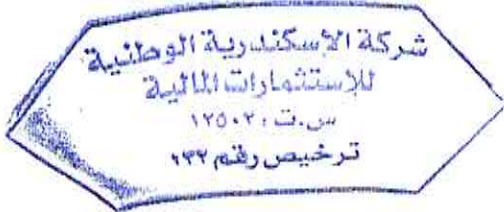 شركة الإسكندرية الوطنية
للإستثمارات المالية
س.ت : ١٢٥٠٢
ترخيص رقم ٢٣٢